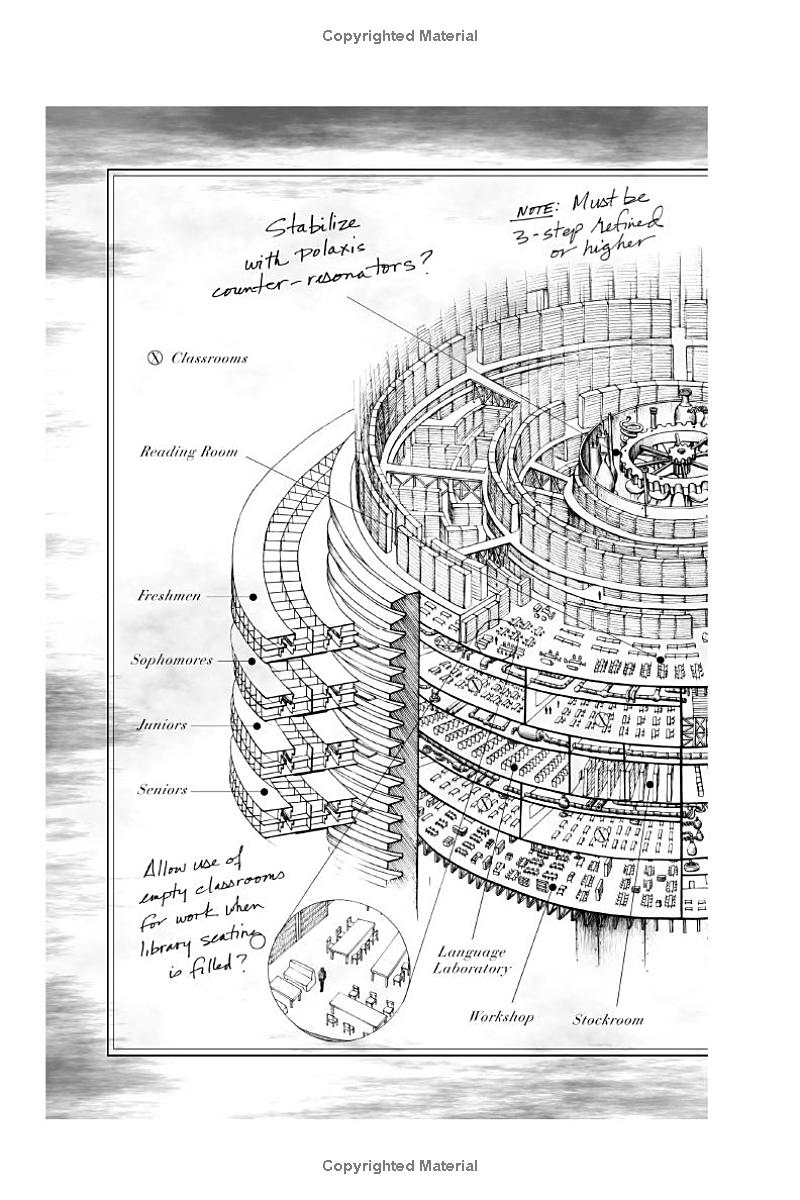 Copyrighted Material
Stabilize
with polaxis
counter-resonators?
NOTE: Must be
3-step refined
or higher
Classrooms
Reading Room
Freshmen
Sophomores
Juniors
Seniors
Allow use of
empty classrooms
for work when
library seating
is filled?
Language
Laboratory
Workshop
Stockroom
Copyrighted Material